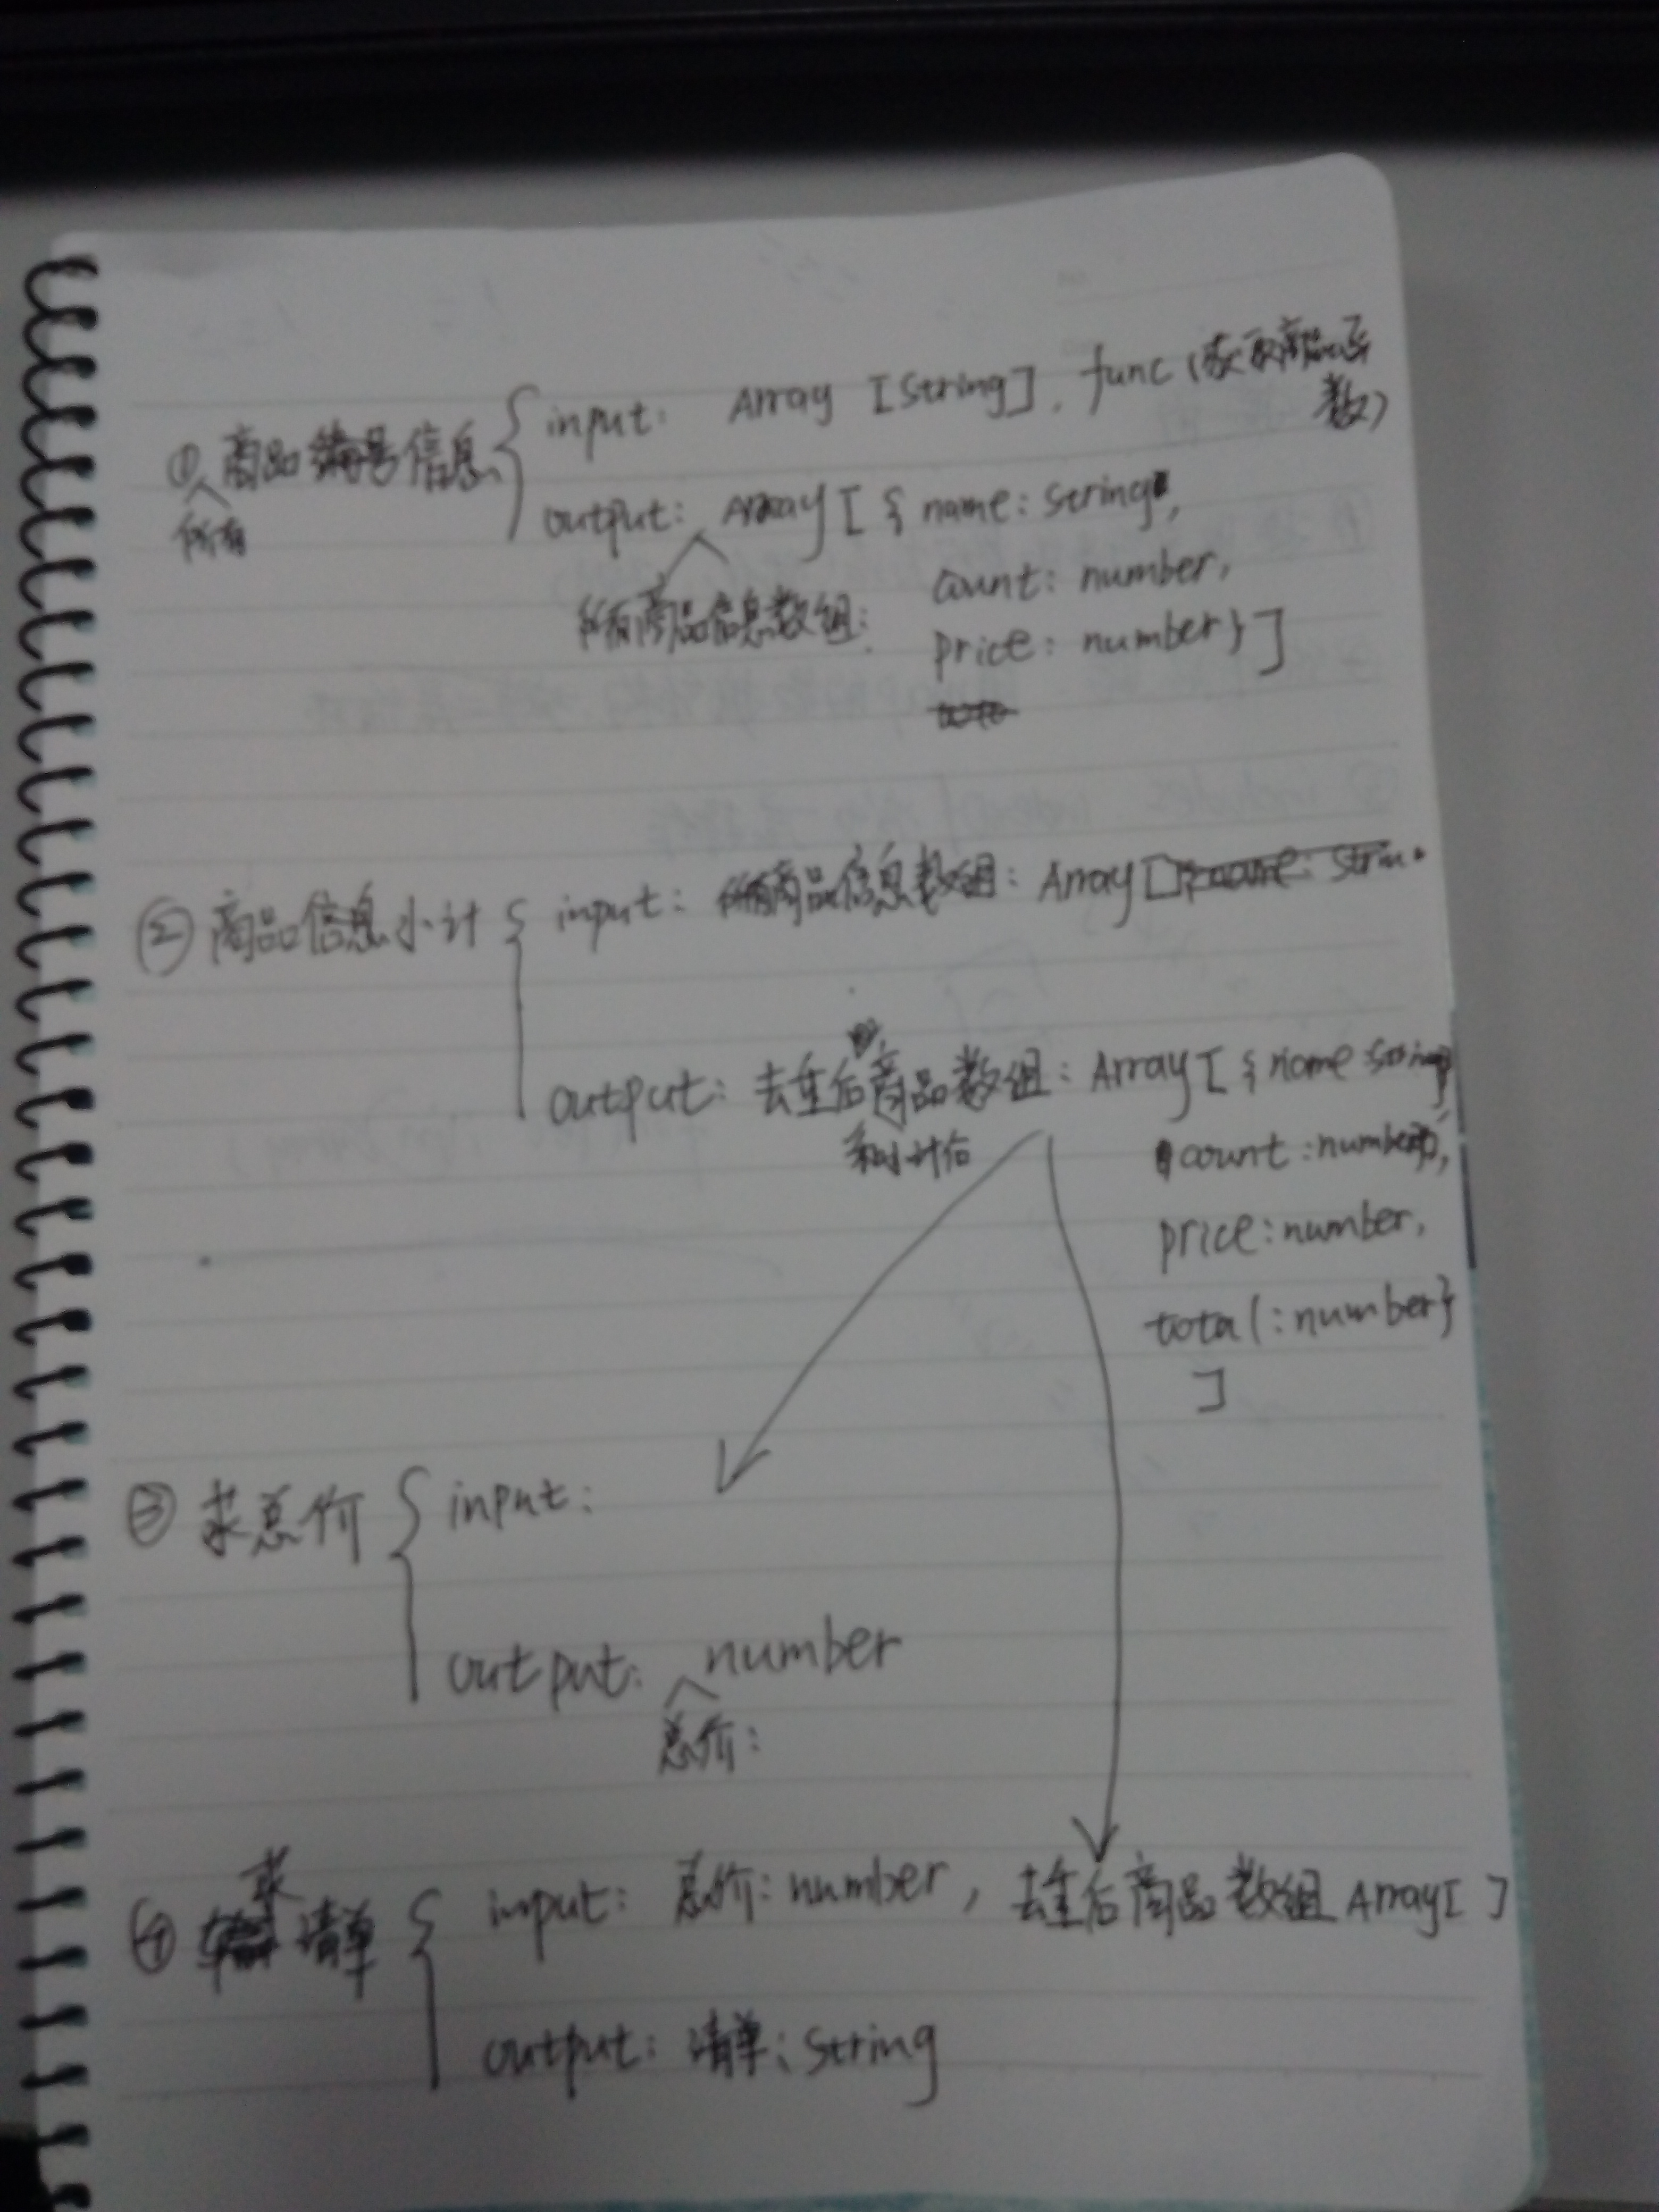 ① 所有商品信息
input: Array [String], func (获取商品函数)
output: 所有商品信息数组: Array [ { name: string,
count: number,
price: number} ]
② 商品信息小计
input: 所有商品信息数组: Array []
output: 去重后和小计后商品数组: Array [ { name string,
count: number,
price: number,
total: number}
]
③ 求总价
input:
output: 总价: number
④ 求清单
input: 总价: number, 去重后商品数组 Array[ ]
output: 清单: String